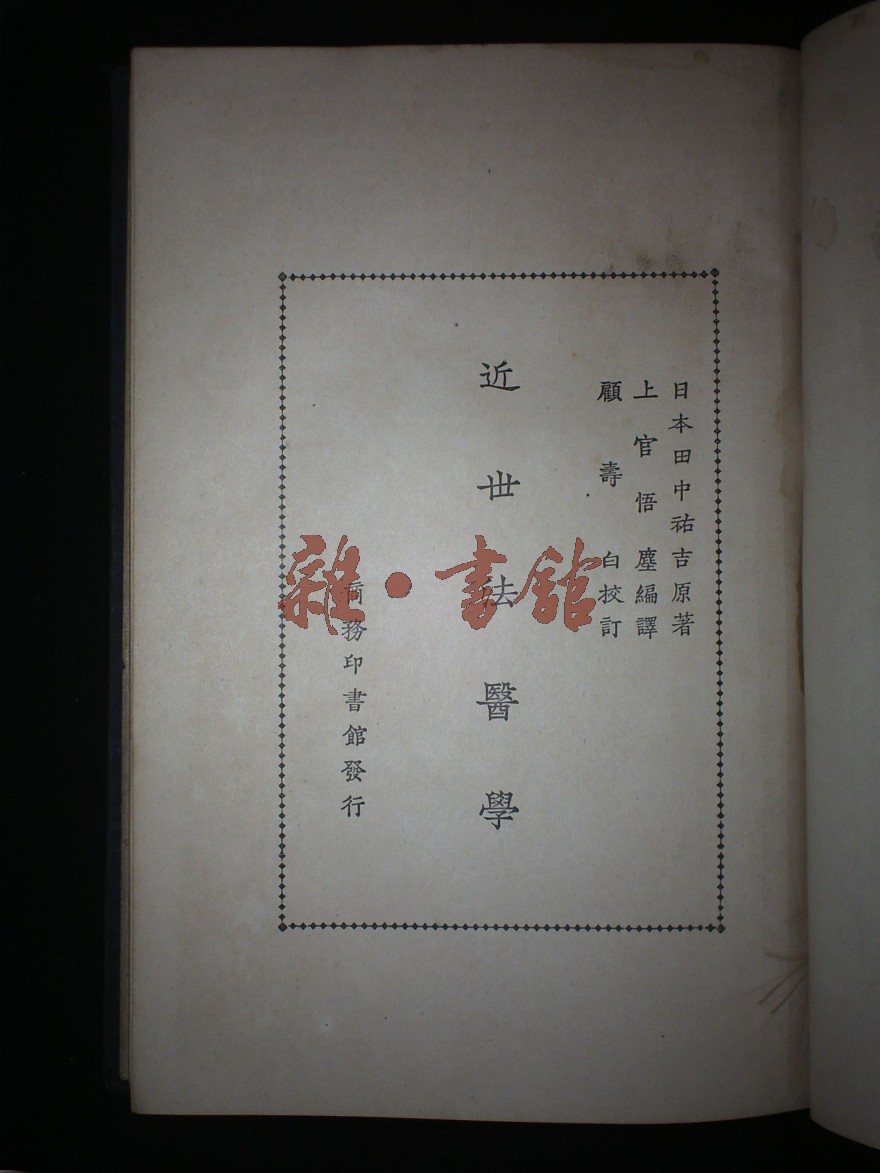 日本田中祐吉原著
上官悟塵編譯
顧壽白校訂
近世法醫學
商務印書館發行
雜·書館